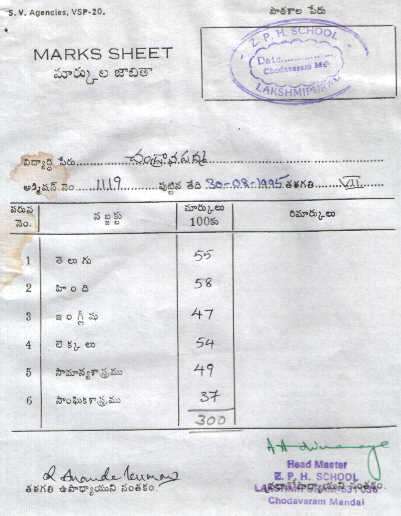 S. V. Agencies, VSP-20.
పాఠశాల పేరు
MARKS SHEET
మార్కుల జాబితా
Z. P. H. SCHOOL
Date
Chodavaram Md.
LAKSHMIPURAM
విద్యార్థి పేరు
అడ్మిషన్ నెం 1119 పుట్టిన తేది 30-08-1995 తరగతి VII
వరుస నెం. సబ్జక్టు మార్కులు 100కు రిమార్కులు
1 తెలుగు 55
2 హింది 58
3 ఇంగ్లీషు 47
4 లెక్కలు 54
5 సామాన్యశాస్త్రము 49
6 సాంఘికశాస్త్రము 37
300
తరగతి ఉపాధ్యాయుని సంతకం.
Head Master
Z. P. H. SCHOOL
LAKSHMIPURAM-531036
ప్రధానోపాధ్యాయుని సంతకం.
Chodavaram Mandal